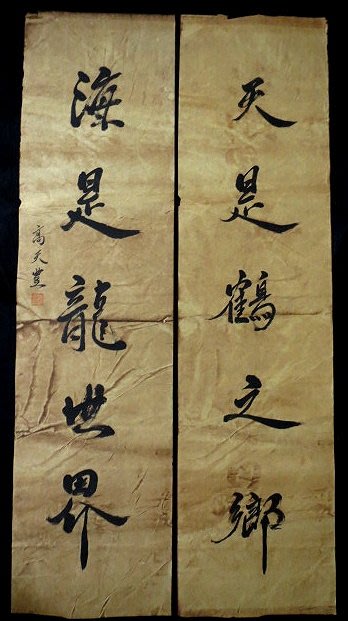 天是鶴之鄉
海是龍世界
高天豐